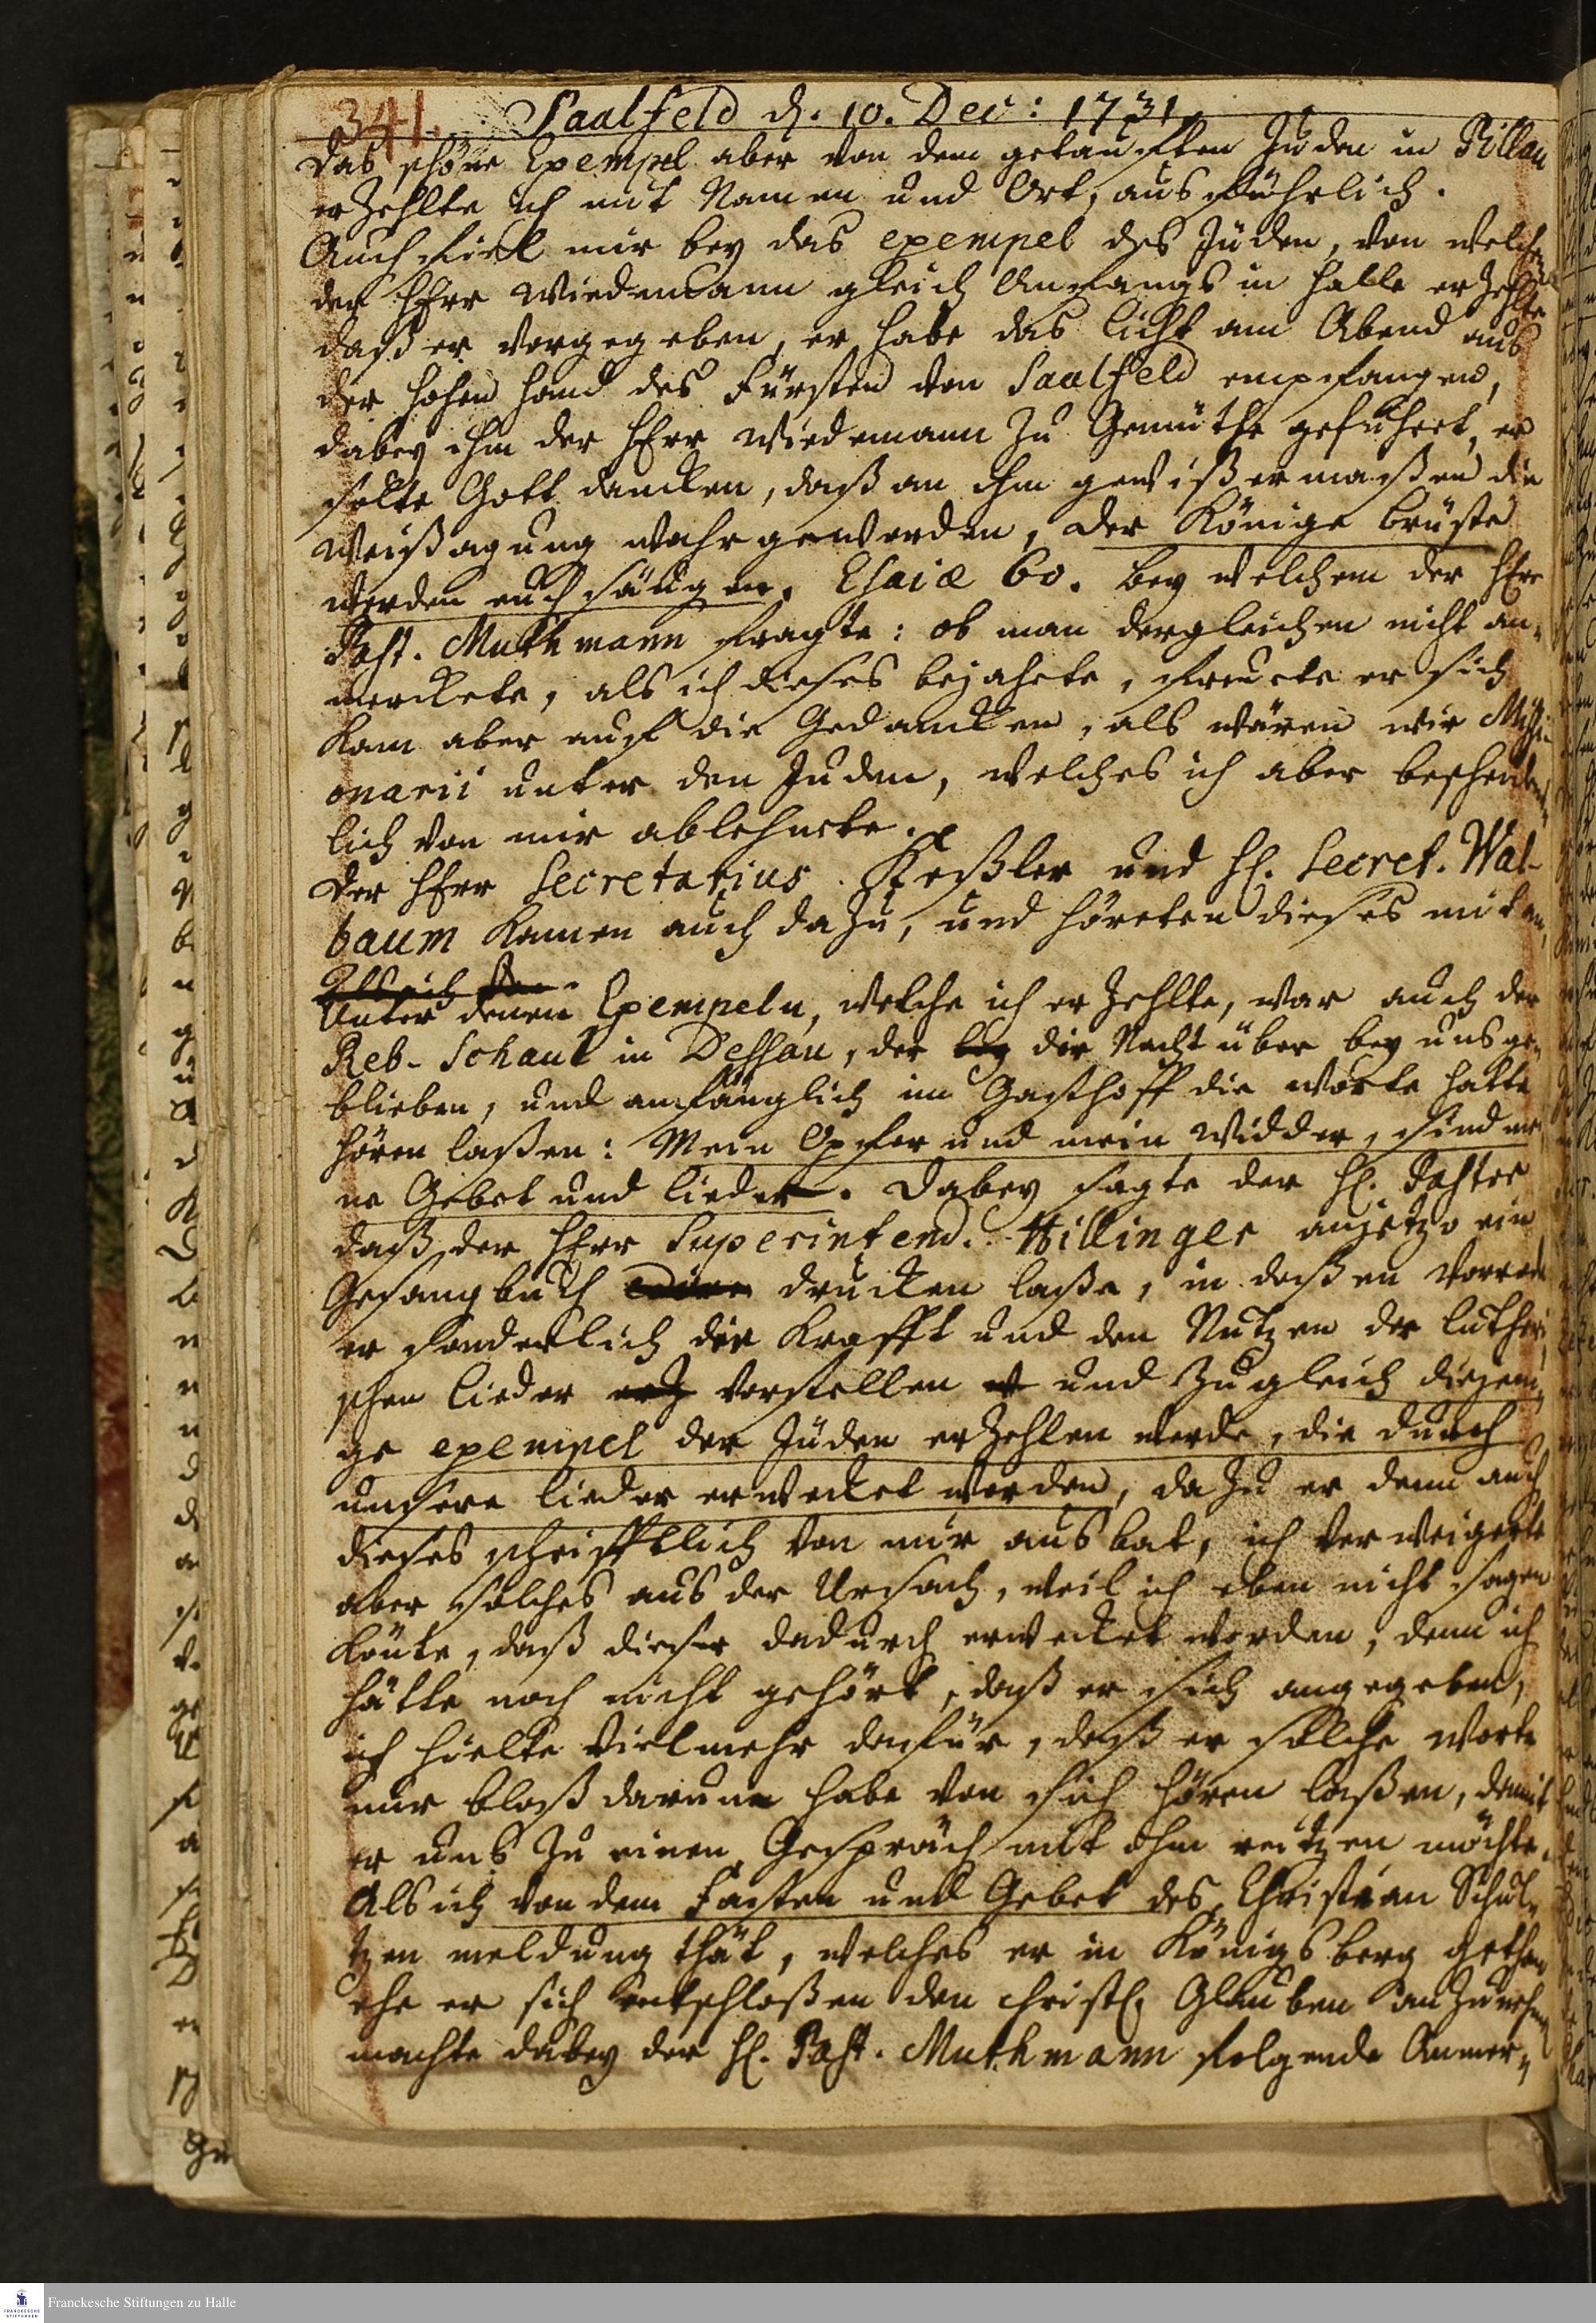 341. Saalfeld d. 10. Dec: 1731.
Das schöne Exempel aber von dem getaufften Juden in Pillau
erzehlte ich mit Namen und Ort, ausführlich.
Auch fiel mir bey das exempel des Juden, von welchen
der HErr Wiedemann gleich Anfangs in Halle erzehlte
daß er vorgegeben, er habe das licht am Abend aus
der hohen Hand des Fürsten von Saalfeld empfangen,
dabey ihm der HErr Wiedemann zu Gemüthe geführet, er
solte Gott dancken, daß an ihm gewißermaßen die
Weißagung wahrgeworden, der Könige brüste
werden euch säugen. Esaiæ 60. bey welchem der HErr
Past. Muthmann fragte: ob man dergleichen nicht an-
merckete, als ich dieses bejahete, freuete er sich
kam aber auf die Gedancken, als wären wir Missi-
onarii unter den Juden, welches ich aber bescheident-
lich von mir ablehnete.
Der HErr Secretarius Keßler und H. Secret. Wal-
baum kamen auch dazu, und höreten dieses mit an,
Als ich
Unter denen Exempeln, welche ich erzehlte, war auch der
Reb. Schaul in Dessau, der bey die Nacht über bey uns ge-
blieben, und anfänglich im Gasthoff die Worte hatte
hören laßen: Mein Opfer und mein Widder, sind mei-
ne Gebet und lieder. Dabey sagte der H. Pastor
daß der HErr Superintend. Hillinger anjetzo ein
Gesangbuch drucken laße, in deßen Vorrede
er sonderlich die Krafft und den Nutzen der luthri-
schen lieder erz vorstellen und zugleich diejeni-
ge exempel der Juden erzehlen werde, die durch
unsere lieder erwecket worden, dazu er denn auch
dieses schrifftlich von mir ausbat, ich verweigerte
aber solches aus der Ursach, weil ich eben nicht sagen
könte, daß dieser dadurch erwecket worden, denn ich
hätte noch nicht gehört, daß er sich angegeben,
ich hielte vielmehr dafür, daß er solche Worte
nur bloß darum habe von sich hören laßen, damit
er uns zu einen Gespräch mit ihm reitzen möchte.
Als ich von dem Fasten und Gebet des Christian Schul-
tzen meldung thät, welches er in Königsberg gethan
ehe er sich entschloßen den christl. Glauben anzunehmen
machte dabey der H. Past. Muthmann folgende Anmer-
Franckesche Stiftungen zu Halle